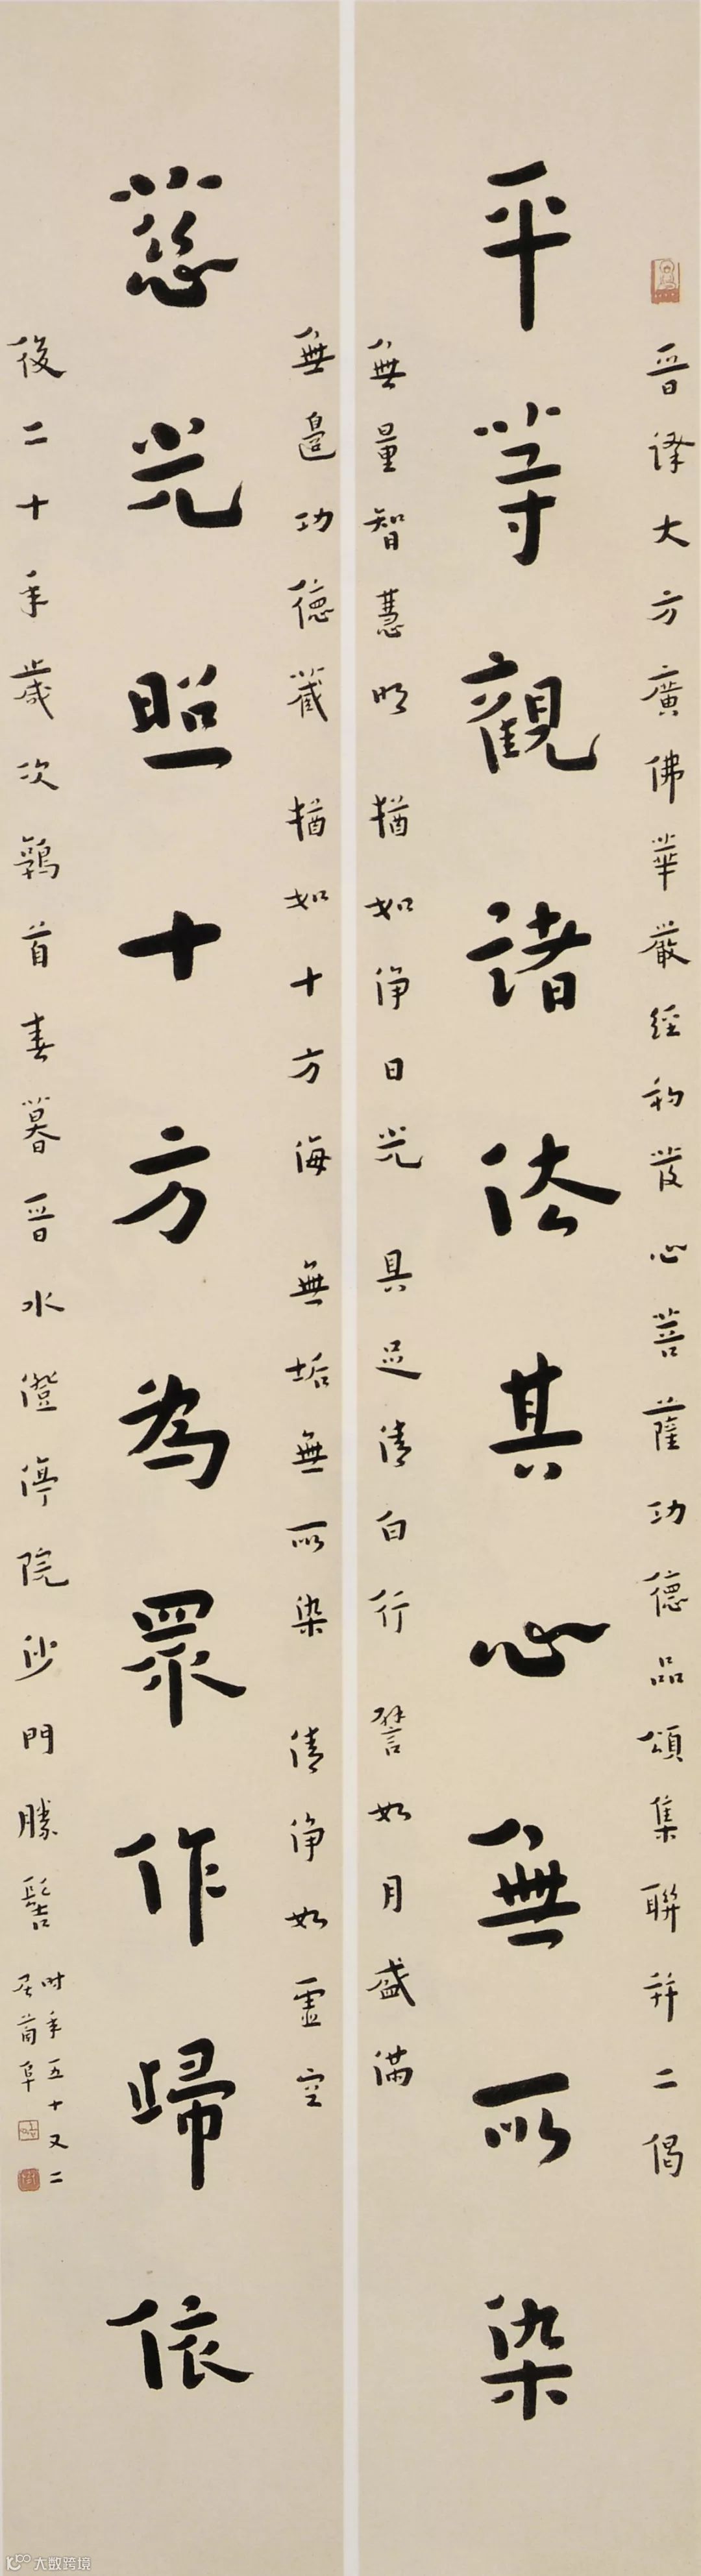 晉譯大方廣佛華嚴經初發心菩薩功德品頌集聯并二偈
平等觀諸法其心無所染
無量智慧明 猶如淨日光 具足清白行 譬如月盛滿
無邊功德藏 猶如十方海 無垢無所染 清淨如虛空
慈光照十方為眾作歸依
後二十年歲次鶉首春暮晉水澄渟院沙門勝髻
時年五十又二
居莆阜
大数跨境